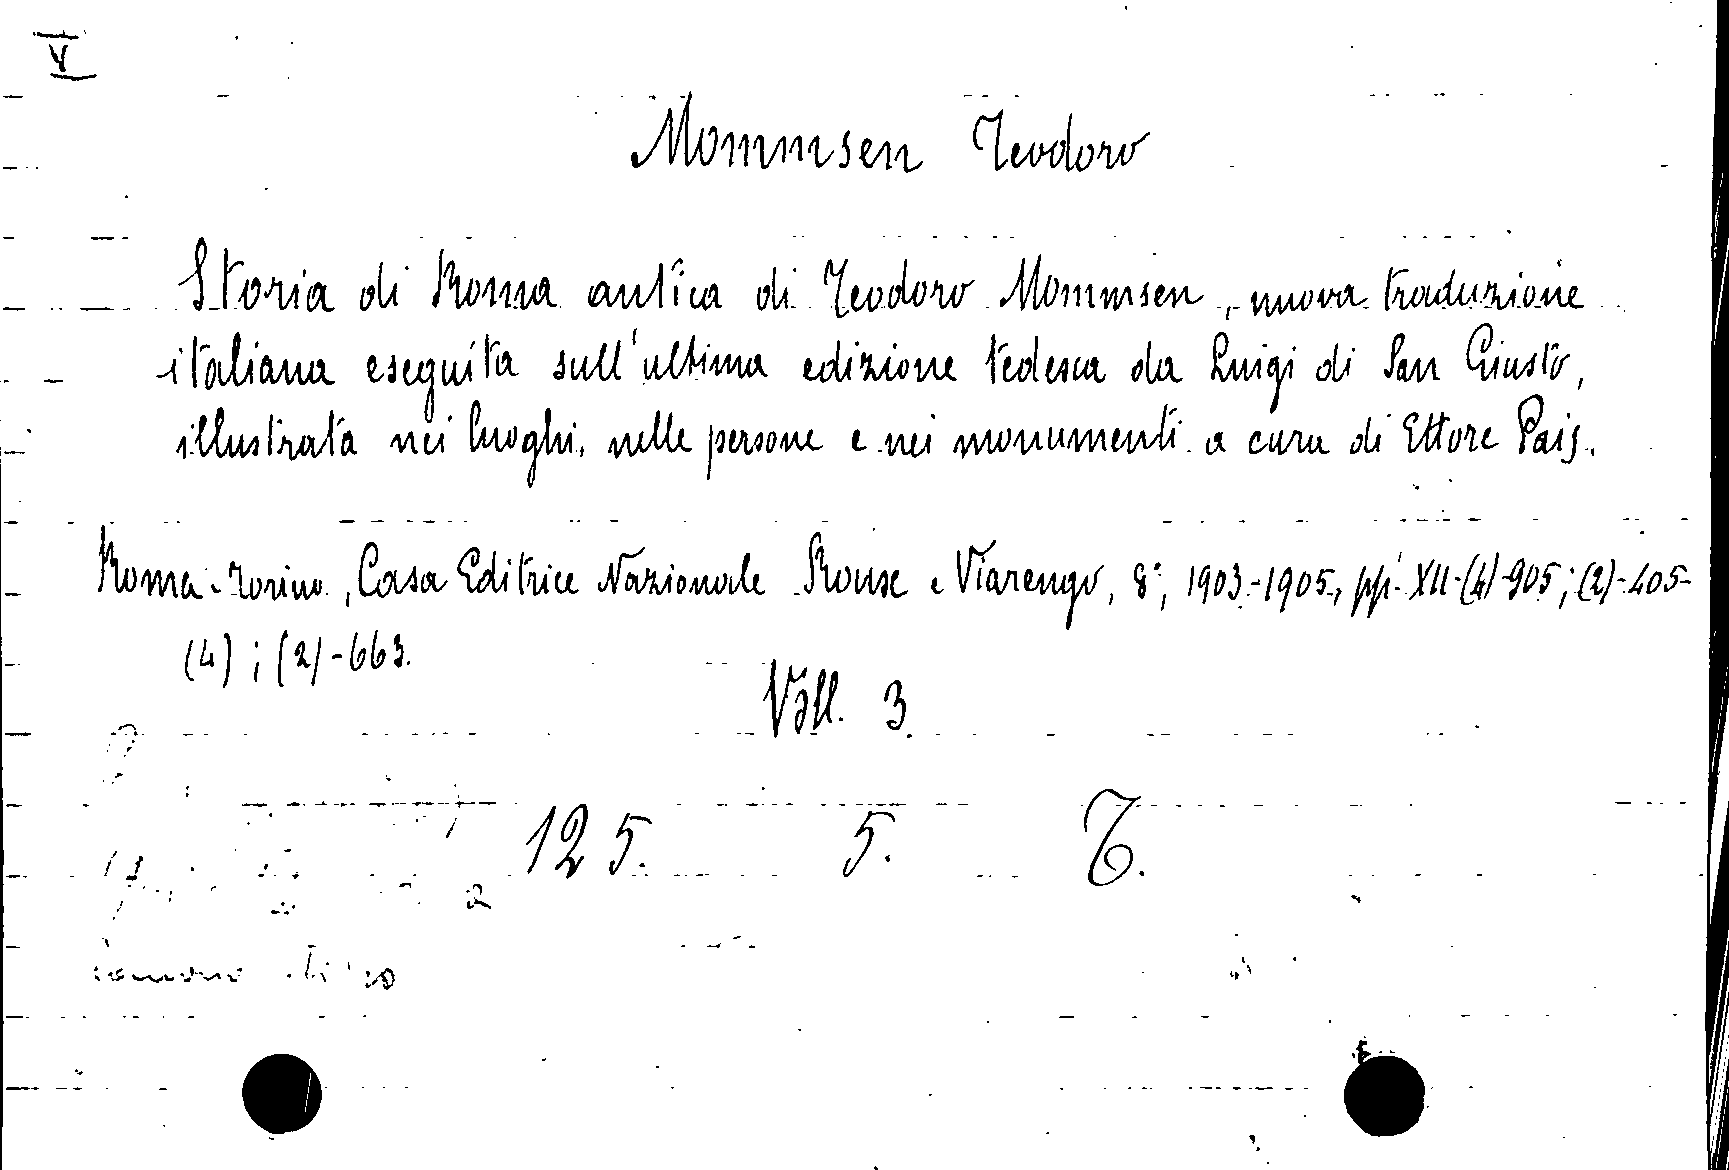 V
Mommsen Teodoro
Storia di Roma antica di Teodoro Mommsen, nuova traduzione
italiana eseguita sull'ultima edizione tedesca da Luigi di San Giusto,
illustrata nei luoghi, nelle persone e nei monumenti a cura di Ettore Pais.
Roma-Torino, Casa Editrice Nazionale Roux e Viarengo, 8°, 1903-1905, pp. XII-(4)-905; (2)-405-
(4); (2)-663.
Voll. 3.
125. 5. T.